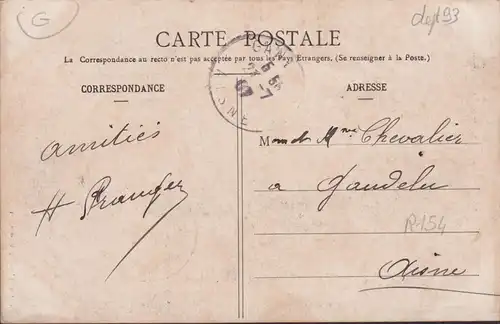 G
dept 93
CARTE POSTALE
La Correspondance au recto n'est pas acceptée par tous les Pays Etrangers, (Se renseigner à la Poste.)
CORRESPONDANCE
ADRESSE
AISNE
amitiés
M et Mme Chevalier
a Gandelu
R-154
Aisne